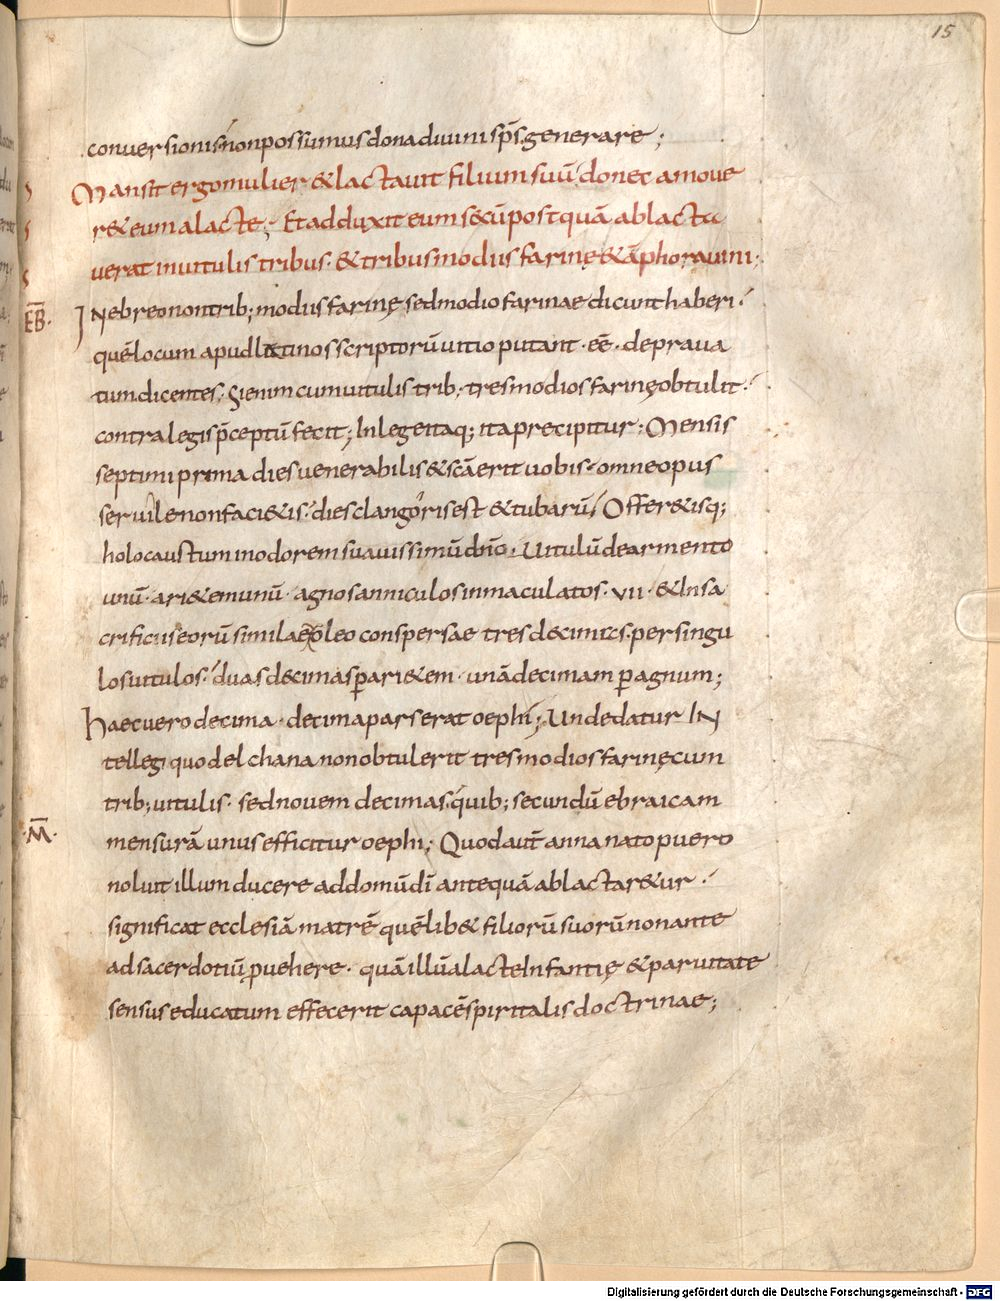 15
conuersionis non possumus dona diuini sp̄s generare;
Mansit ergo mulier & lactauit filium suū donec amoue
r&eum a lacte; Et adduxit eum secū postquā ablacta
uerat in uitulis tribus. & tribus modiis farinę & āphora uini;
EB̄.
IN ebreo non trib; modiis farinę sed modio farinae dicunt haberi.
quē locum apud latinos scriptorū uitio putant. eē. depraua
tum dicentes; Si enim cum uitulis trib; tres modios farinę obtulit.
contra legis p̄ceptū fecit; In lege itaq; ita precipitur; Mensis
septimi prima dies uenerabilis & scā erit uobis. omne opus
seruile non faci&is. dies clangoris est & tubarū; Offer&isq;
holocaustum in odorem suauissimū dn̄o. Uitulū de armento
unū. ari&em unū. agnos anniculos inmaculatos. VII. & In sa
crificiis eorū similae oleo conspersae tres decimas. per singu
los uitulos. duas decimas p ari&em. unā decimam p agnum;
haec uero decima. decima pars erat oephi; Unde datur IN
tellegi quod elchana non obtulerit tres modios farinę cum
trib; uitulis. sed nouem decimas. quib; secundū ebraicam
M̄.
mensurā unus efficitur oephi; Quod aut̄ anna nato puero
noluit illum ducere ad domū dī antequā ablactar&ur.
significat ecclesiā matrē quēlib& filiorū suorū non ante
ad sacerdotiū puehere. quā illū a lacte Infantię & paruitate
sensus educatum effecerit capacē spiritalis doctrinae;
Digitalisierung gefördert durch die Deutsche Forschungsgemeinschaft - DFG